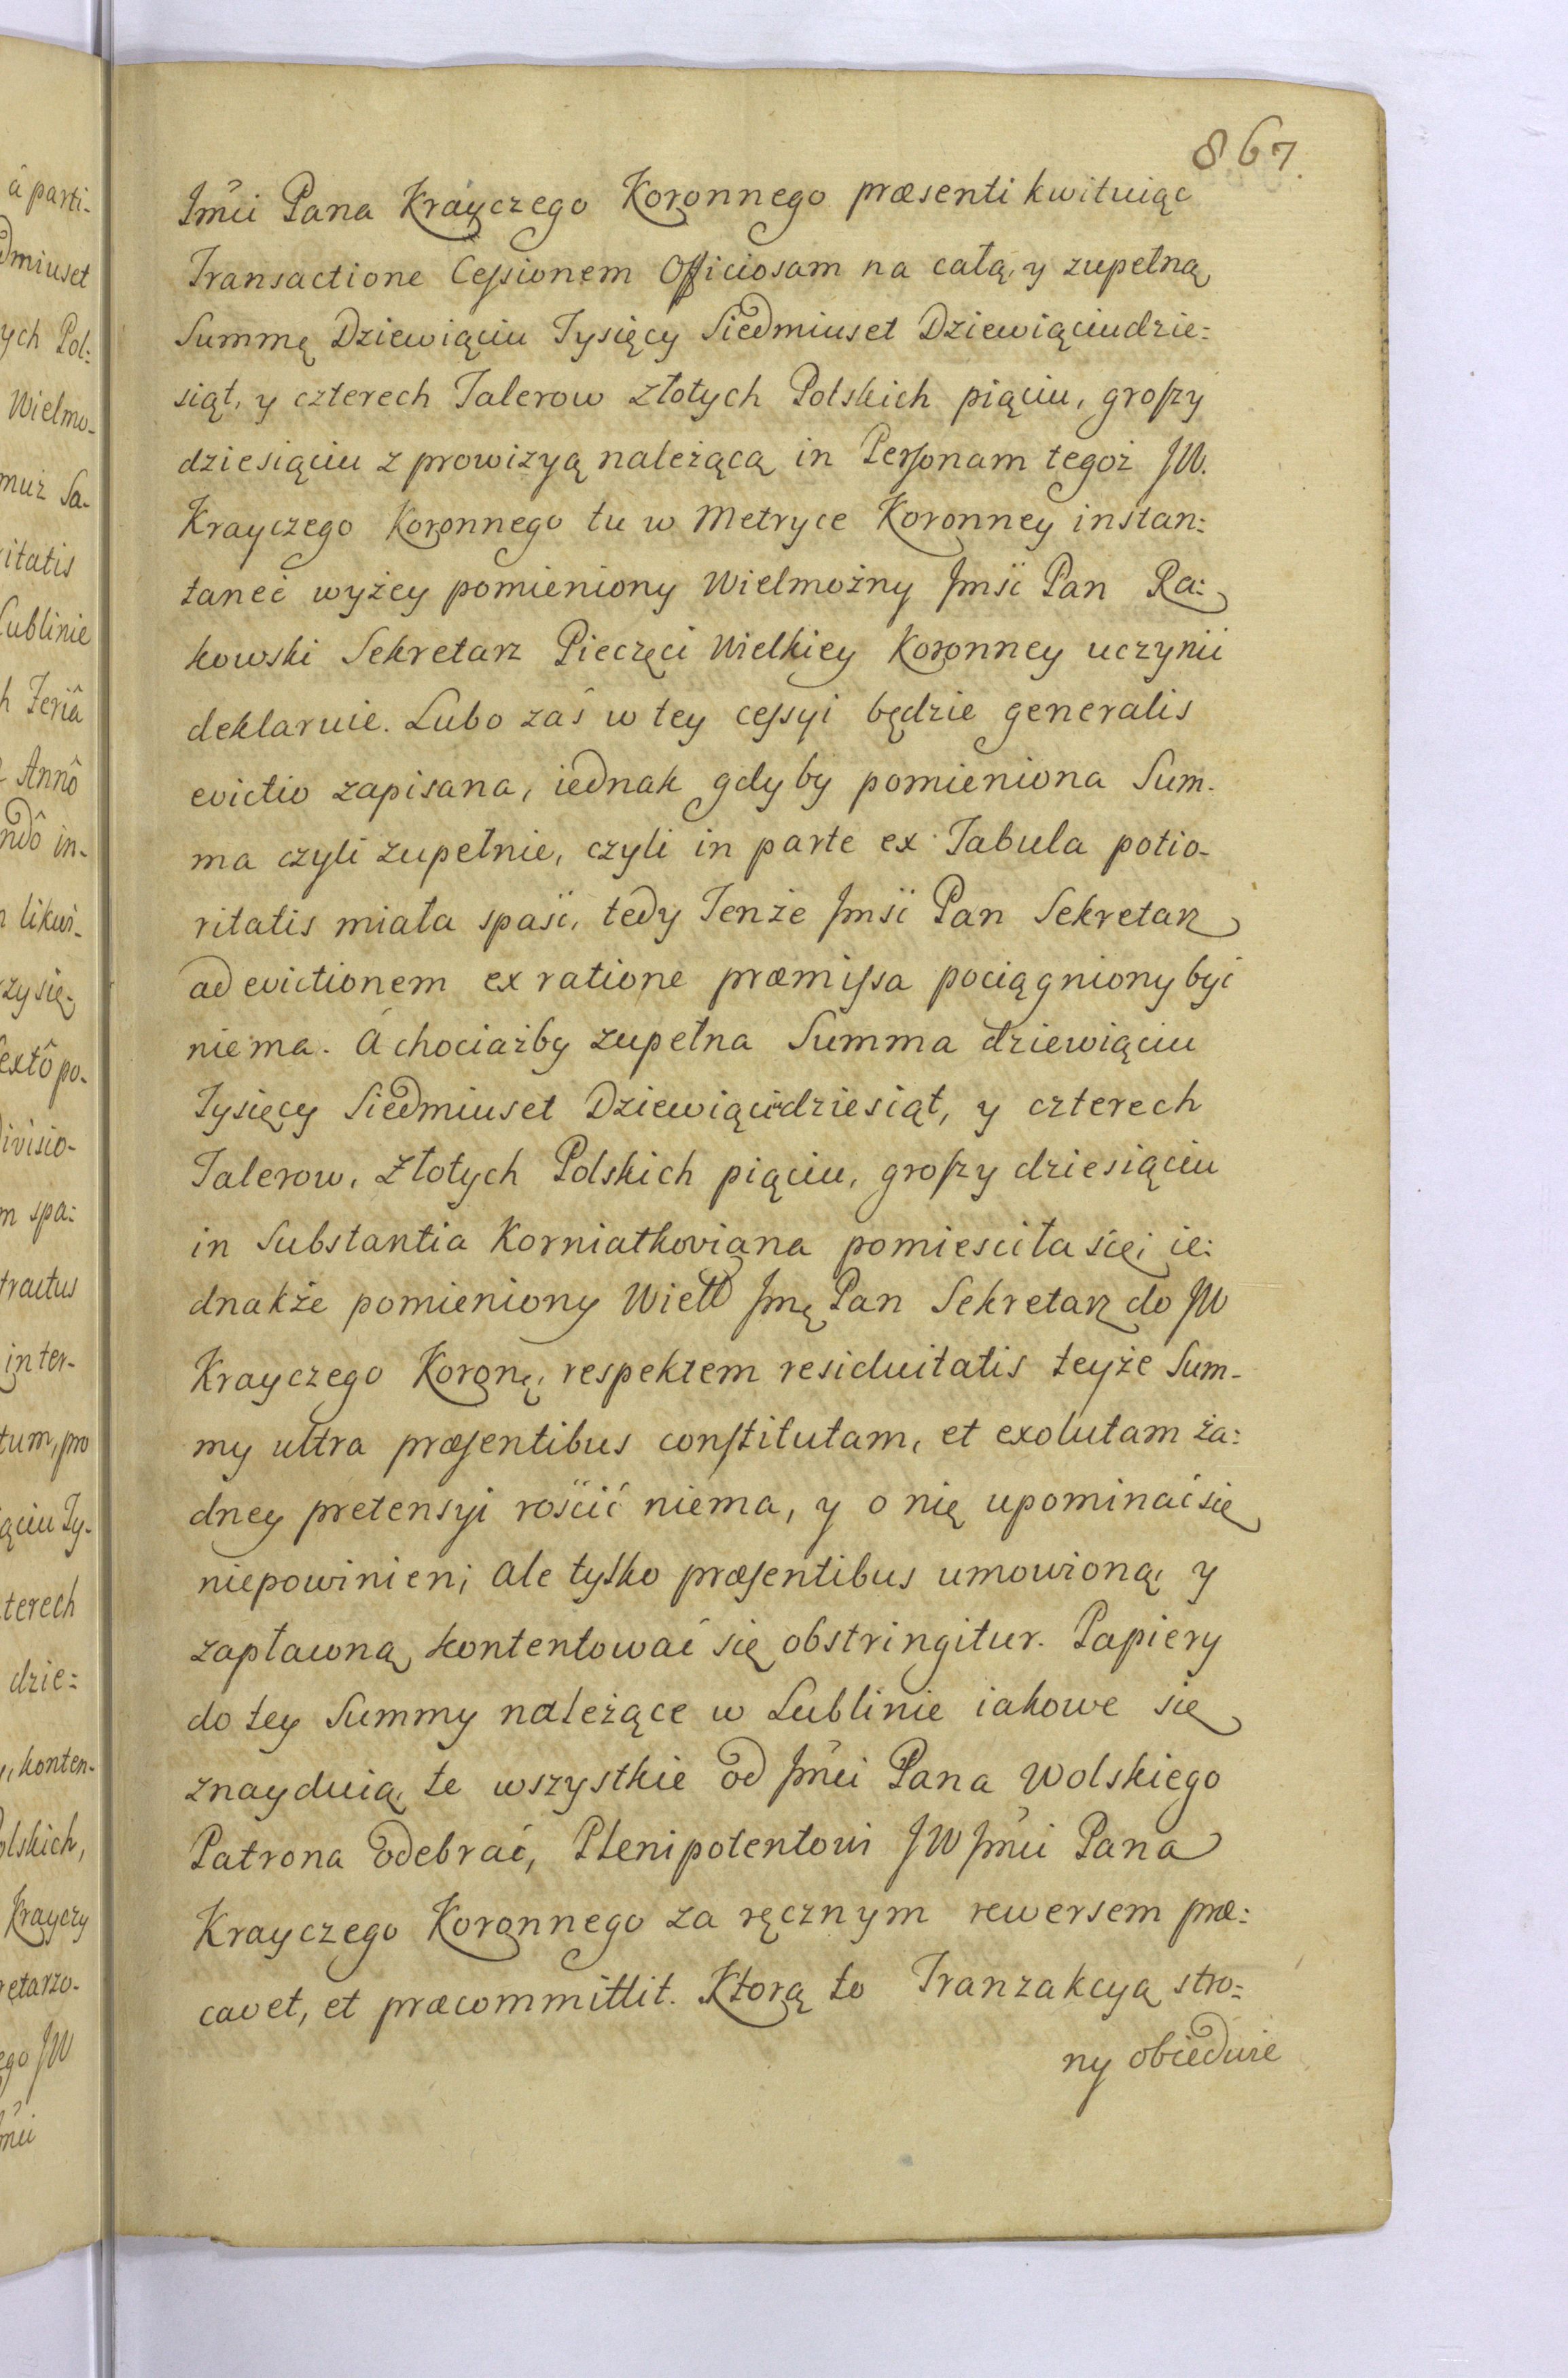 867.
Jmći Pana Krayczego Koronnego præsenti kwituiąc
Transactione Cessionem Officiosam na całą, y zupełną
Summę Dziewiąciu Tysięcy Siedmiuset Dziewiąciudzie:
siąt, y czterech Talerow złotych Polskich piąciu, groszy
dziesiąciu z prowizyą należącą in Personam tegoż JW.
Krayczego Koronnego tu w Metryce Koronney instan:
taneé wyżey pomieniony Wielmożny Jmść Pan Ra:
kowski Sekretarz Pieczęci Wielkiey Koronney uczynić
deklaruie. Lubo zaś w tey cessyi będzie generalis
evictio zapisana, iednak gdyby pomieniona Sum-
ma czyli zupełnie, czyli in parte ex Tabula potio-
ritatis miała spaść, tedy Tenże Jmść Pan Sekretarz
ad evictionem ex ratione præmissa pociągniony być
niema. á chociażby zupełna Summa dziewiąciu
Tysięcy Siedmiuset Dziewiąciudziesiąt, y czterech
Talerow, Złotych Polskich piąciu, groszy dziesiąciu
in Substantia Korniatkoviana pomiescila się; ie:
dnakże pomieniony Wiel Jmę Pan Sekretarz do JW
Krayczego Koronę, respektem residuitatis teyże Sum-
my ultra præsentibus constitutam, et exolutam ża:
dney pretensyi rościć niema, y o nię upominać się
niepowinien; ale tylko præsentibus umowioną, y
zapławną kontentować się obstringitur. Papiery
do tey Summy należące w Lublinie iakowe się
znayduią, te wszystkie od Jmći Pana Wolskiego
Patrona odebrać, Plenipotentowi JW Jmći Pana
Krayczego Koronnego za ręcznym rewersem præ:
cavet, et præcommittit. Ktorą to Tranzakcyą stro:
ny obiedwie
á parti-
dmiuset
ych Pol:
Wielmo-
muż Sa-
itatis
Lublinie
h Feriâ
Annô
ndô in-
likwi-
zysię-
extô po-
ivisio-
m spa:
tractus
inter-
tum, pro
ąciu Ty-
terech
dzie:
konten-
olskich,
Krayczy
retarzo-
ego JW
mći